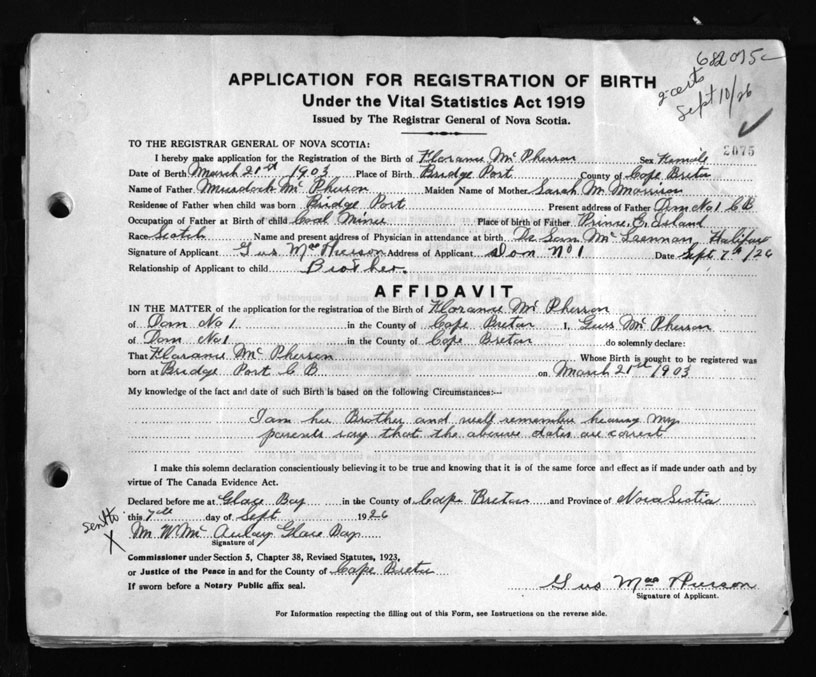 682075
2 certs
Sept 10/26
APPLICATION FOR REGISTRATION OF BIRTH
Under the Vital Statistics Act 1919
Issued by The Registrar General of Nova Scotia.
TO THE REGISTRAR GENERAL OF NOVA SCOTIA:
2075
I hereby make application for the Registration of the Birth of Florance Mc Pherson Sex Female
Date of Birth March 21st 1903 Place of Birth Bridge Port County of Cape Breton
Name of Father Murdock Mc Pherson Maiden Name of Mother Sarah M Morrison
Residense of Father when child was born Bridge Port Present address of Father Dom No 1 C B
Occupation of Father at Birth of child Coal Miner Place of birth of Father Prince E. Island
Race Scotch Name and present address of Physician in attendance at birth Dr Sam Mc Leenman Halifax
Signature of Applicant Gus MacPherson Address of Applicant Dom No 1 Date Sept 7th/26
Relationship of Applicant to child Brother.
AFFIDAVIT
IN THE MATTER of the application for the registration of the Birth of Florance Mc Pherson
of Dom No 1 in the County of Cape Breton I, Guss Mc Pherson
of Dom No 1 in the County of Cape Breton do solemnly declare:
That Florance Mc Pherson Whose Birth is sought to be registered was
born at Bridge Port C B on March 21st 1903
My knowledge of the fact and date of such Birth is based on the following Circumstances:—
I am her Brother and well remember hearing my
parents say that the above dates are correct
I make this solemn declaration conscientiously believing it to be true and knowing that it is of the same force and effect as if made under oath and by
virtue of The Canada Evidence Act.
Declared before me at Glace Bay in the County of Cape Breton and Province of Nova Scotia
this 7th day of Sept 1926
sent to
X
Mr W. Mc Aulay Glace Bay
Signature of
Commissioner under Section 5, Chapter 38, Revised Statutes, 1923,
or Justice of the Peace in and for the County of Cape Breton
If sworn before a Notary Public affix seal.
Gus MacPherson
Signature of Applicant.
For Information respecting the filling out of this Form, see Instructions on the reverse side.